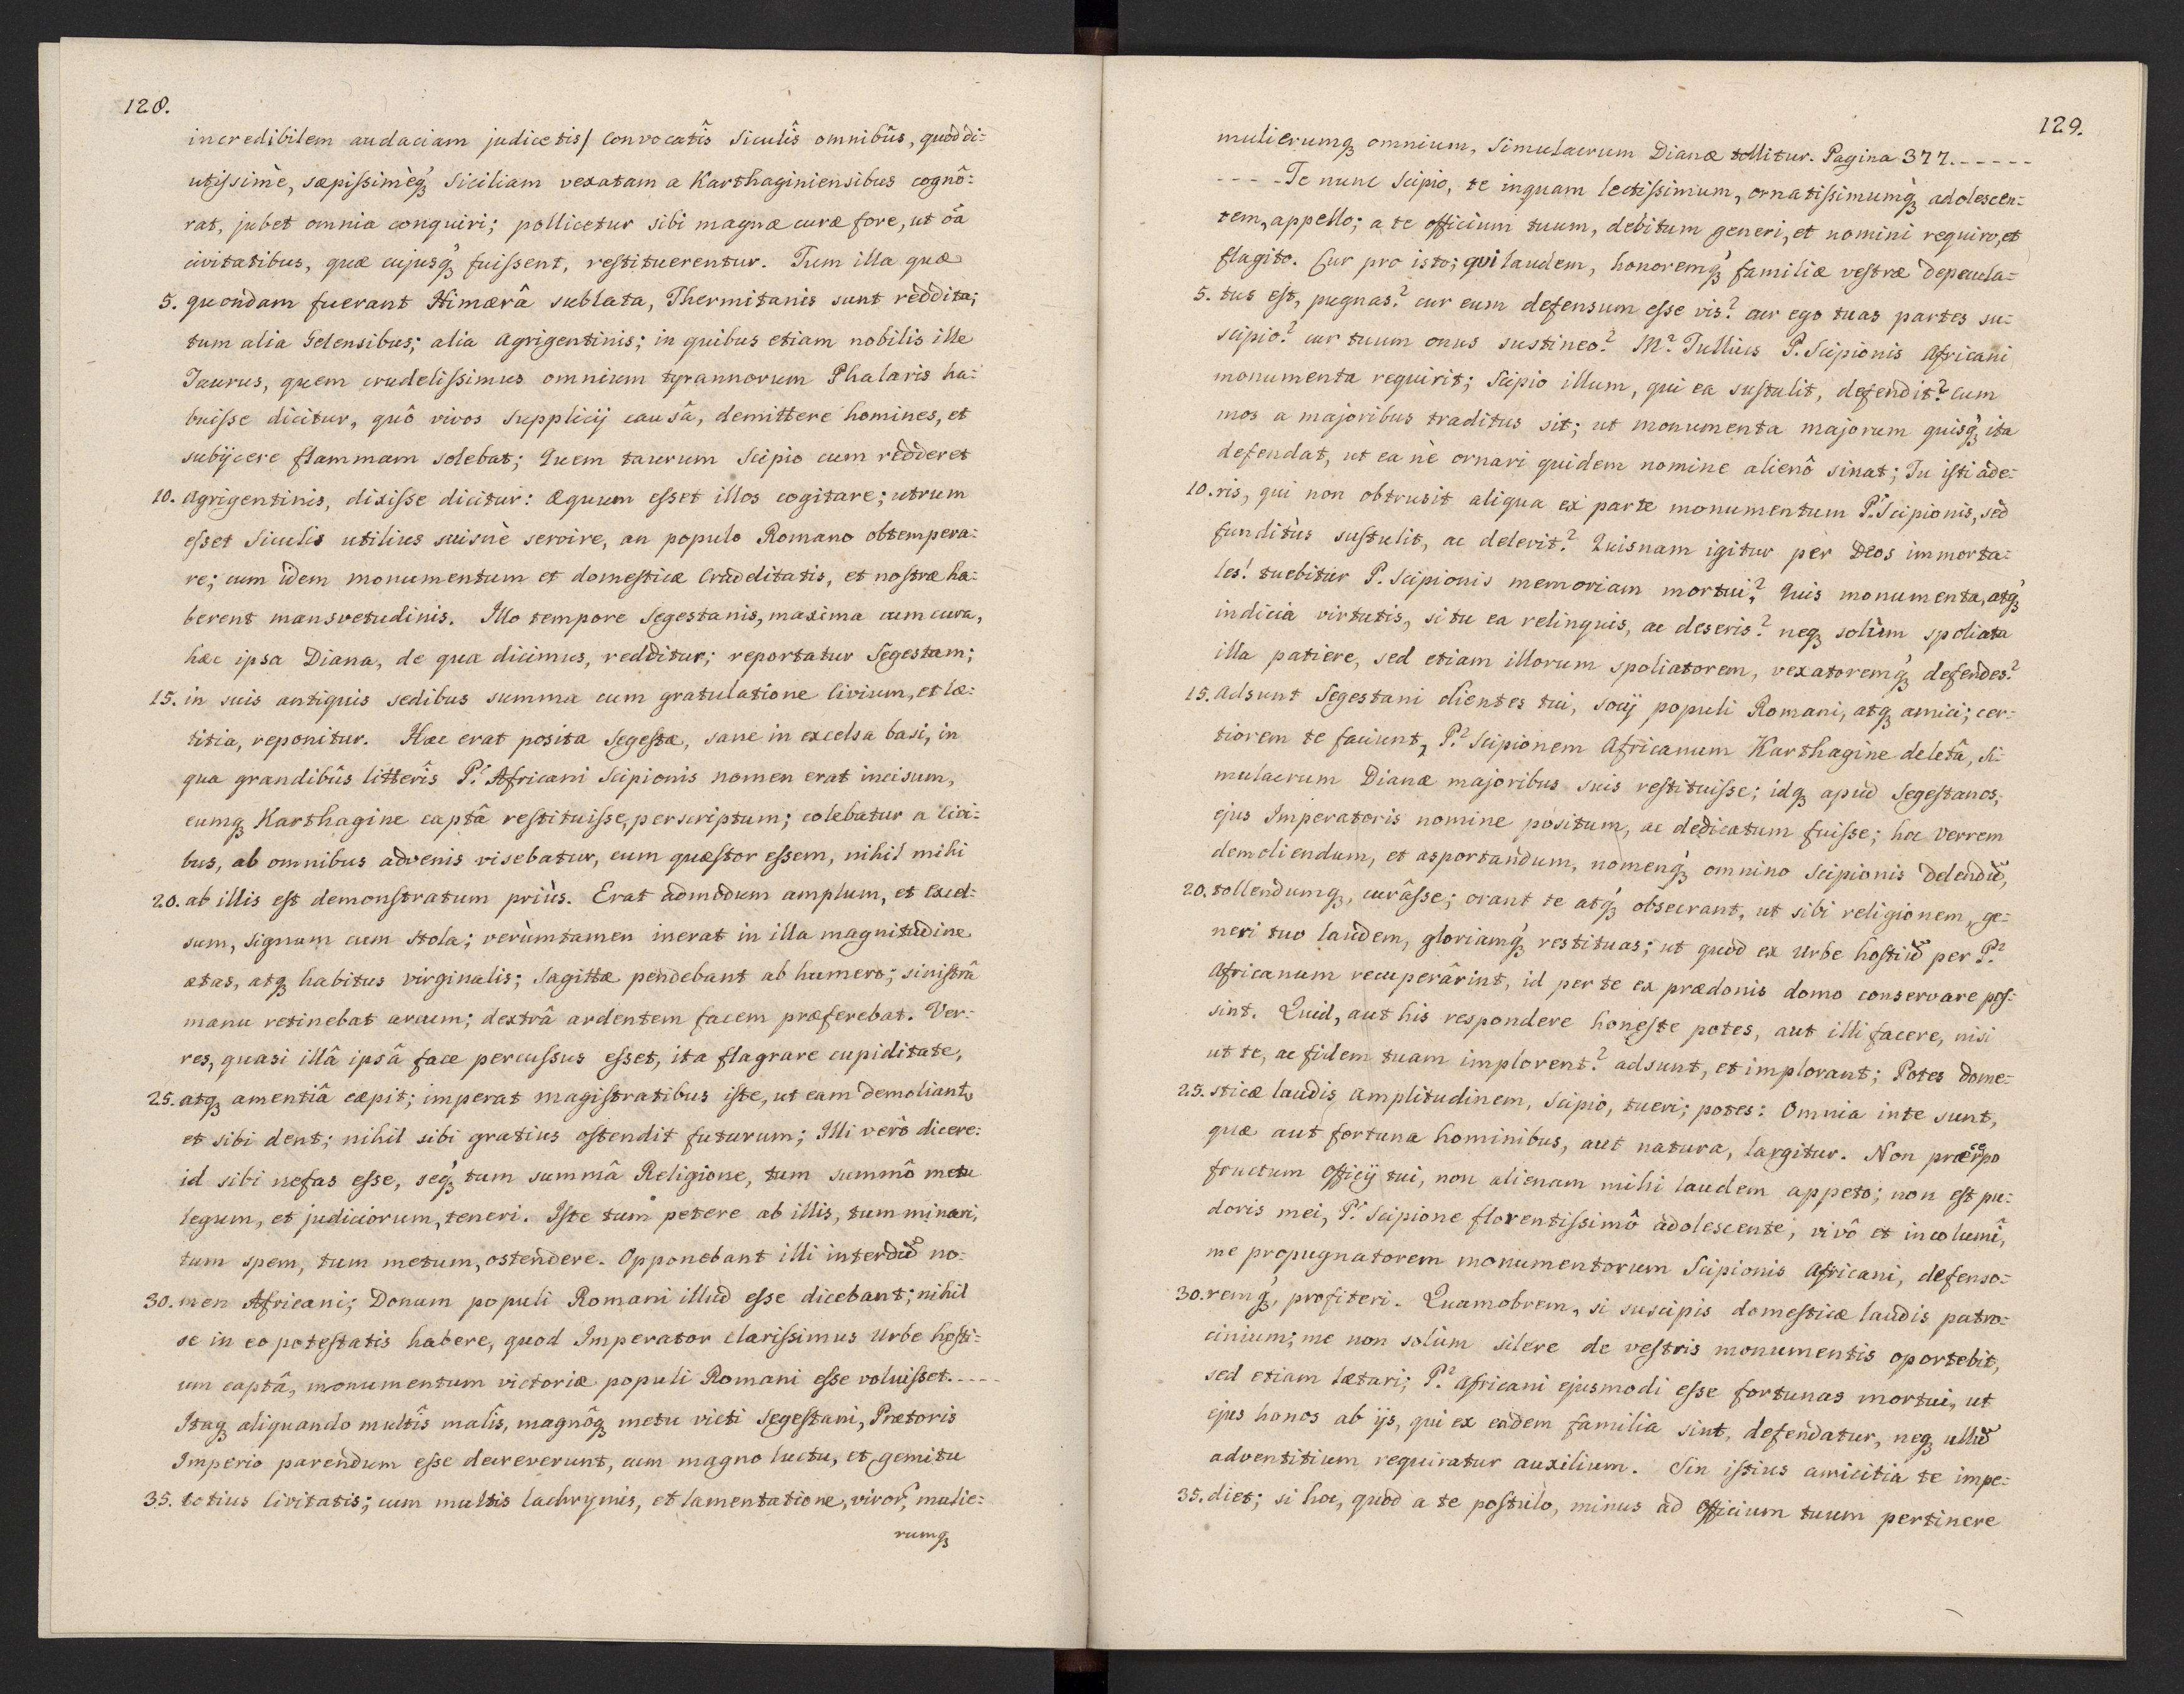 128.
incredibilem audaciam judicetis/ Convocatîs Siculîs omnibûs, quòd di:
utissimè, sæpissimèq́ꝫ Siciliam vexatam a Karthaginiensibus cognô:
rat, jubet omnia conquiri; pollicetur sibi magnæ curæ fore, ut oa̅
civitatibus, quæ cujusq́ꝫ fuissent, restituerentur. Tum illa quæ
5. quondam fuerant Himærâ sublata, Thermitanis sunt reddita;
tum alia Gelensibus; alia Agrigentinis; in quibus etiam nobilis ille
Taurus, quem crudelissimus omnium tyrannorum Phalaris ha:
buisse dicitur, quô vivos supplicij causâ, demittere homines, et
subijcere flammam solebat; Quem taurum Scipio cum redderet
10. Agrigentinis, dixisse dicitur: Æquum esset illos cogitare; utrum
esset Siculis utilius suisnè servire, an populo Romano obtempera:
re; cum idem monumentum et domesticæ Crudelitatis, et nostræ ha:
berent mansvetudinis. Illo tempore Segestanis, maxima cum cura,
hæc ipsa Diana, de qua dicimus, redditur; reportatur Segestam;
15. in suis antiquis sedibus summa cum gratulatione Civium, et læ:
titia, reponitur. Hæc erat posita Segestæ, sane in excelsa basi, in
qua grandibûs litterîs P. Africani Scipionis nomen erat incisum,
eumqꝫ Karthagine captâ restituisse, perscriptum; colebatur a Civi:
bus, ab omnibus advenis visebatur, cum quæstor essem, nihil mihi
20. ab illis est demonstratum priùs. Erat admodum amplum, et Excel:
sum, signum cum stola; verùmtamen inerat in illa magnitudine
ætas, atqꝫ habitus virginalis; sagittæ pendebant ab humero; sinistrâ
manu retinebat arcum; dextrâ ardentem facem præferebat. Ver:
res, quasi illâ ipsâ face percussus esset, ita flagrare cupiditate,
25. atqꝫ amentiâ cæpit; imperat magistratibus iste, ut eam demoliant,
et sibi dent; nihil sibi gratius ostendit futurum; Illi verò dicere:
id sibi nefas esse, seq́ꝫ tum summâ Religione, tum summô metu
legum, et judiciorum, teneri. Iste tum petere ab illis, tum minari,
tum spem, tum metum, ostendere. Opponebant illi interdu̅ no:
30. men Africani; Donum populi Romani illud esse dicebant; nihil
se in eo potestatis habere, quod Imperator clarissimus Urbe hosti:
um captâ, monumentum victoriæ populi Romani esse voluisset. - - - -
Itaqꝫ aliquando multîs malîs, magnôqꝫ metu victi Segestani, Prætoris
Imperio parendum esse decreverunt, cum magno luctu, et gemitu
35. totius Civitatis; cum multis lachrymis, et lamentatione, viror, mulie:
rumqꝫ
129.
mulierumqꝫ omnium, Simulacrum Dianæ tollitur. Pagina 377. - - - - - -
- - - - Te nunc Scipio, te inquam lectissimum, ornatissimumq́ꝫ adolescen:
tem, appello; a te officium tuum, debitum generi, et nomini requiro, et
flagito. Cur pro isto; qui laudem, honoremq́ꝫ familiæ vestræ depecula:
5. tus est, pugnas? cur eum defensum esse vis? cur ego tuas partes su:
scipio? cur tuum onus sustineo? M. Tullius P. Scipionis Africani
monumenta requirit; Scipio illum, qui ea sustulit, defendit? Cum
mos a majoribus traditus sit; ut monumenta majorum quisq́ꝫ ita
defendat, ut ea nè ornari quidem nomine alienô sinat; Tu isti ade:
10. ris, qui non obtrusit aliqua ex parte monumentum P. Scipionis, sed
funditùs sustulit, ac delevit? Quisnam igitur per Deos immorta:
les! tuebitur P. Scipionis memoriam mortui? Quis monumenta, atq́ꝫ
indicia virtutis, si tu ea relinquis, ac deseris? neqꝫ solùm spoliata
illa patiere, sed etiam illorum spoliatorem, vexatoremq́ꝫ defendes?
15. Adsunt Segestani clientes tui, socij populi Romani, atqꝫ amici; cer:
tiorem te faciunt, P. Scipionem Africanum Karthagine deletâ, si:
mulacrum Dianæ majoribus suis restituisse; idqꝫ apud Segestanos,
ejus Imperatoris nomine positum, ac dedicatum fuisse; hoc Verrem
demoliendum, et asportandum, nomenq́ꝫ omnino Scipionis delendu̅,
20. tollendumqꝫ, curâsse; orant te atq́ꝫ obsecrant, ut sibi religionem, ge:
neri tuo laudem, gloriamq́ꝫ restituas; ut quod ex Urbe hostiu̅ per P.
Africanum recuperârint, id per te ex prædonis domo conservare pos:
sint. Quid, aut his respondere honeste potes, aut illi facere, nisi
ut te, ac fidem tuam implorent? adsunt, et implorant; Potes dome:
25. sticæ laudis amplitudinem, Scipio, tueri; potes: Omnia in te sunt,
quæ aut fortuna hominibus, aut natura, largitur. Non præcerpo
fructum Officij tui, non alienam mihi laudem appeto; non est pu:
doris mei, P. Scipione florentissimô adolescente, vivô et incolumî,
me propugnatorem monumentorum Scipionis Africani, defenso:
30. remq́ꝫ, profiteri. Quamobrem, si suscipis domesticæ laudis patro:
cinium; me non solùm silere de vestris monumentis oportebit,
sed etiam lætari; P. Africani ejusmodi esse fortunas mortui, ut
ejus honos ab ijs, qui ex eadem familia sint, defendatur, neqꝫ ullu̅
adventitium requiratur auxilium. Sin istius amicitia te impe:
35. diet; si hoc, quod a te postulo, minus ad Officium tuum pertinere